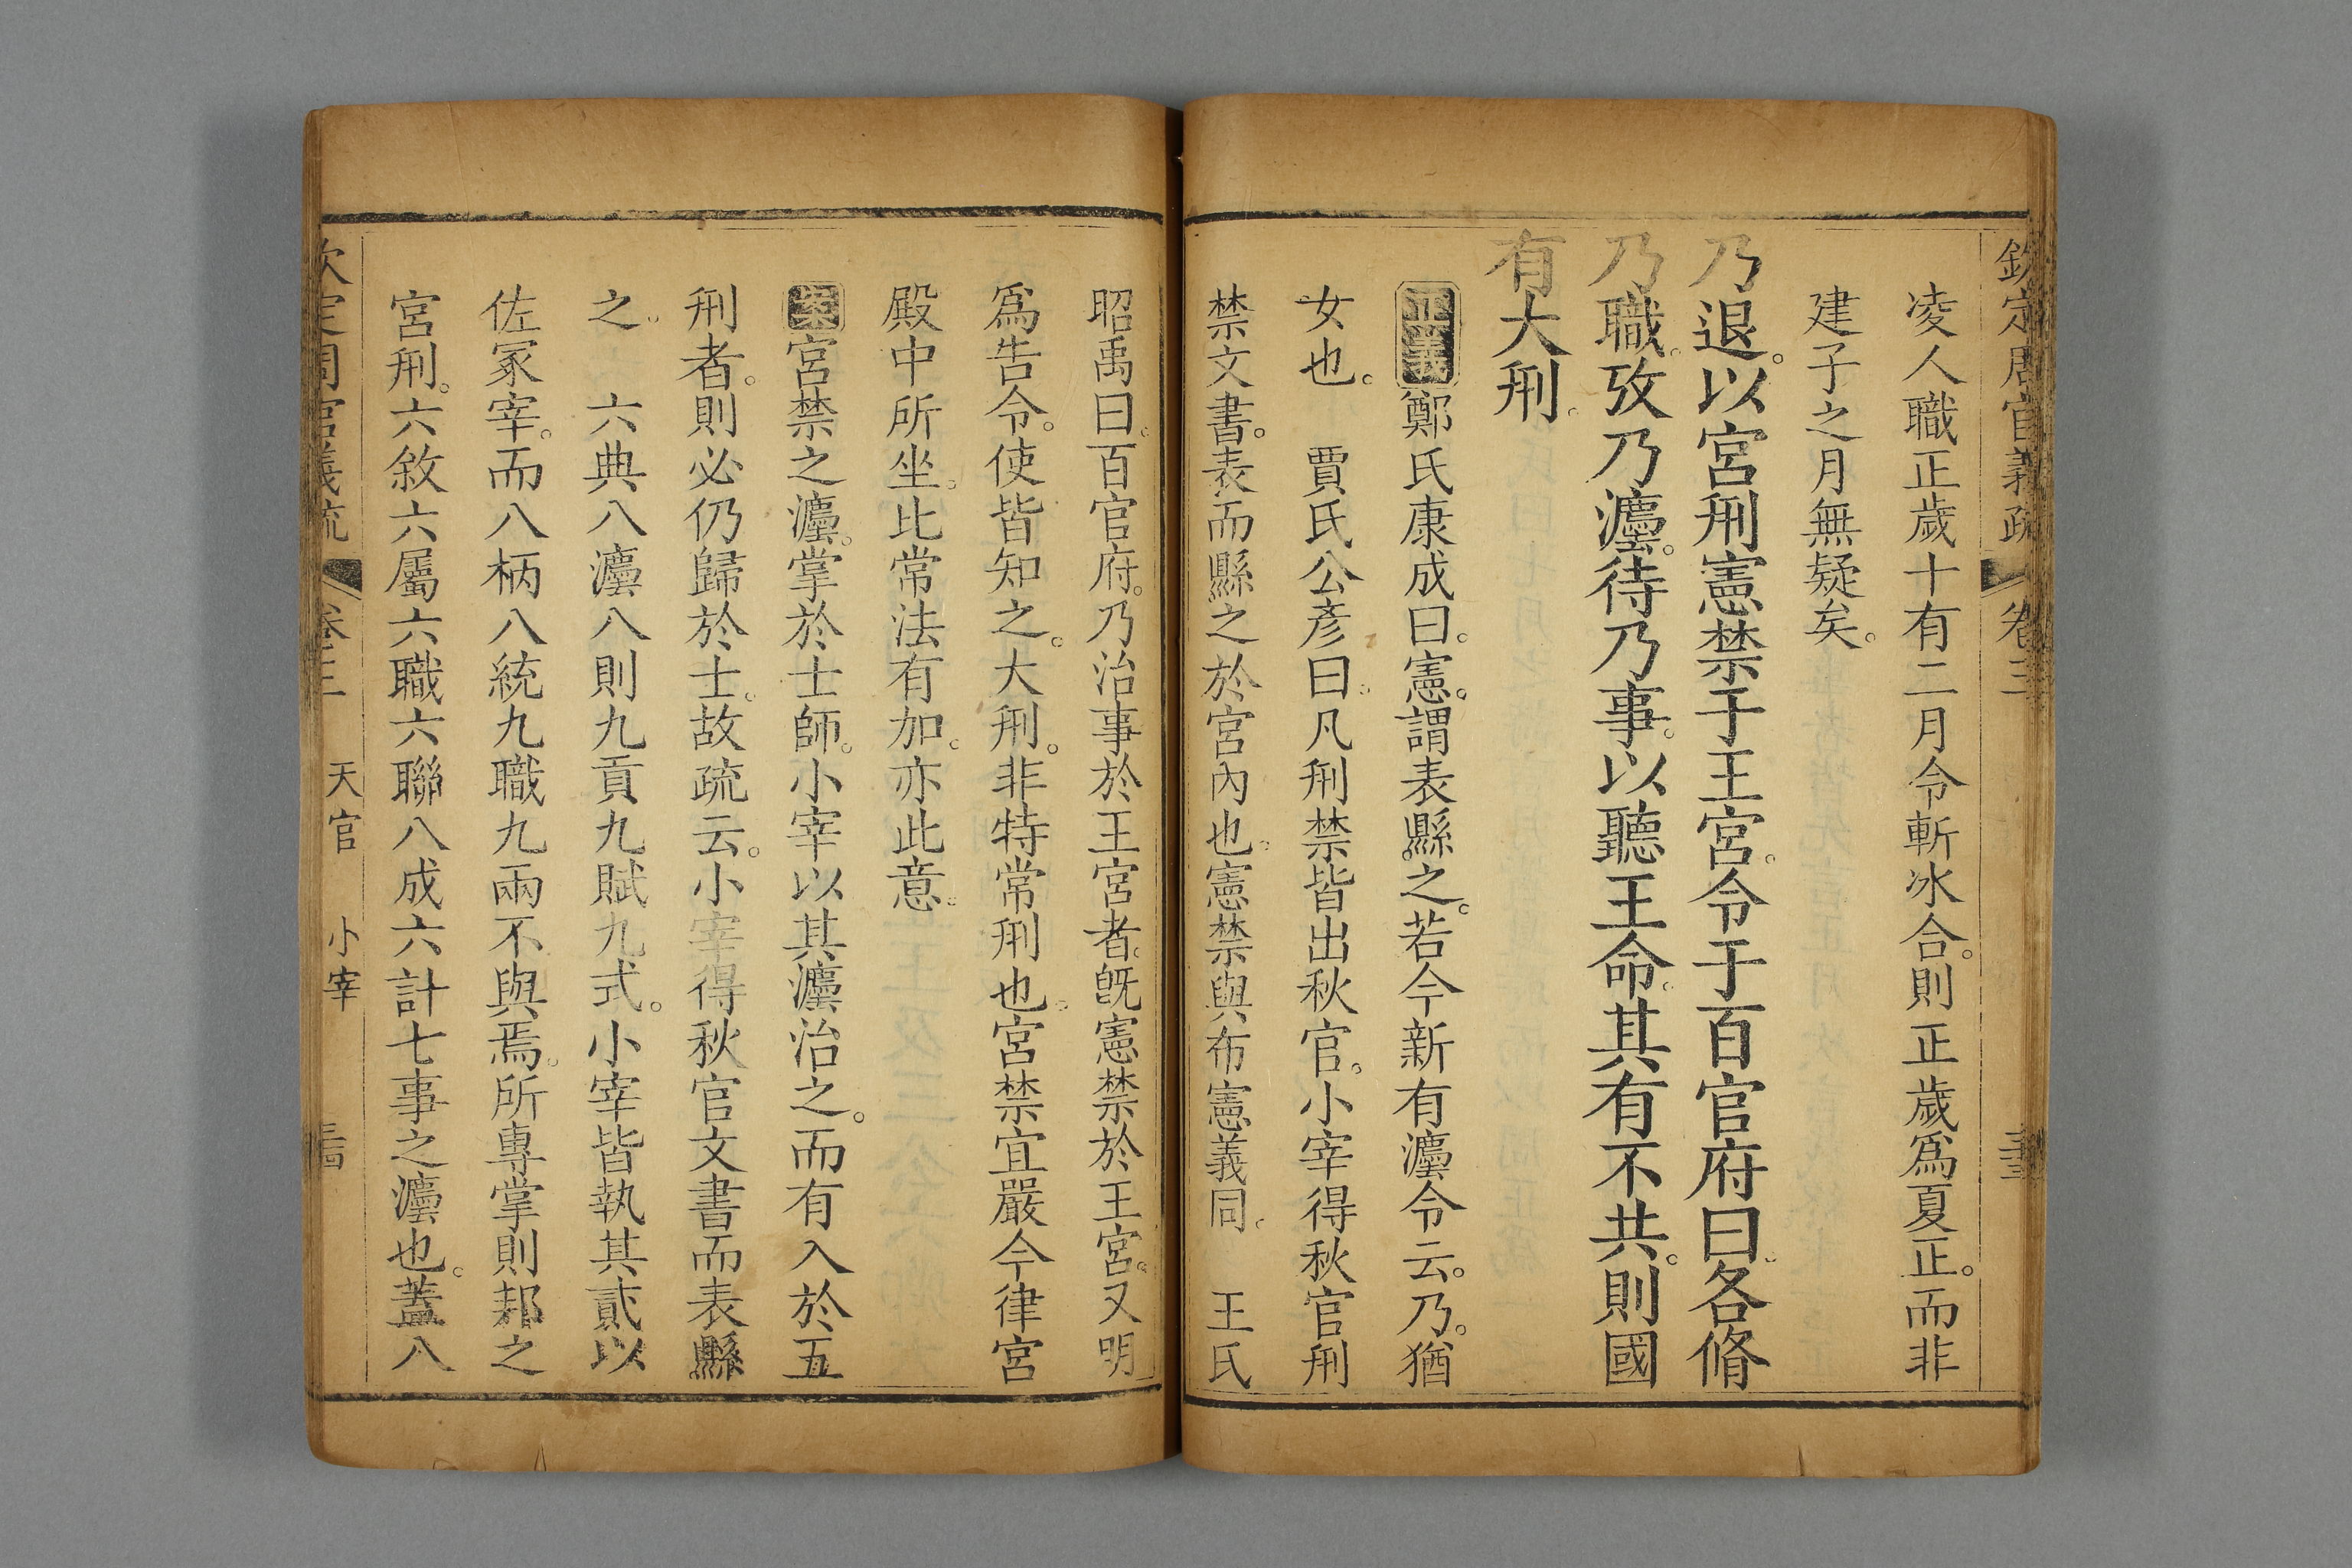 欽定周官義疏 卷三
凌人職正歲十有二月令斬冰合。則正歲爲夏正。而非
建子之月無疑矣。
乃退。以宮刑憲禁于王宮。令于百官府曰。各脩
乃職。攷乃灋。待乃事。以聽王命。其有不共。則國
有大刑。
正義鄭氏康成曰。憲。謂表縣之。若今新有灋令云。乃。猶
女也。 賈氏公彥曰。凡刑禁皆出秋官。小宰得秋官刑
禁文書。表而縣之於宮內也。憲禁與布憲義同。 王氏
昭禹曰。百官府。乃治事於王宮者。旣憲禁於王宮。又明
爲告令。使皆知之。大刑。非特常刑也。宮禁宜嚴今律宮
殿中所坐。比常法有加。亦此意。
案宮禁之灋。掌於士師。小宰以其灋治之。而有入於五
刑者。則必仍歸於士。故疏云。小宰得秋官文書而表縣
之。 六典八灋八則九貢九賦九式。小宰皆執其貳以
佐冢宰。而八柄八統九職九兩不與焉。所專掌則邦之
宮刑。六敘六屬六職六聯八成六計七事之灋也。蓋八
欽定周官義疏 卷三 天官 小宰